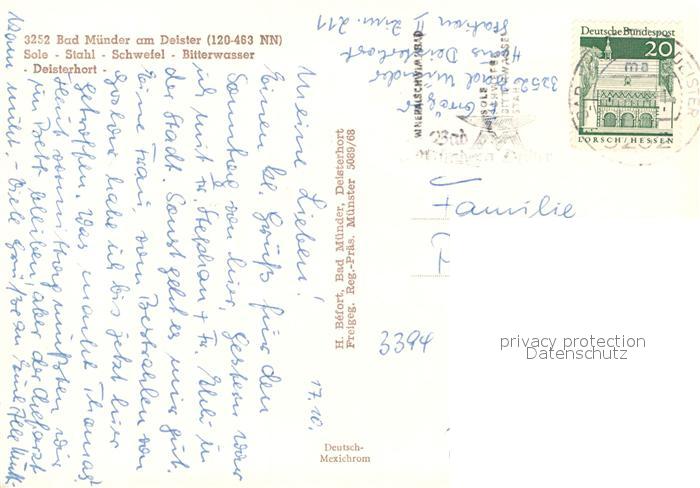 3252 Bad Münder am Deister (120-463 NN)
Sole - Stahl - Schwefel - Bitterwasser
- Deisterhort -
Meine Lieben! 17.10.
Einen kl. Gruß für den
Sonntag von hier. Gestern war
ich mit Fr. Stephan + Fr. in
der Stadt. Sonst geht es mir gut.
Eine Frau, vom Bestrahlen von
Goslar habe ich bis jetzt hier
getroffen. Was macht Thomas?
Heut vormittag mußten wir
im Bett bleiben, aber der Chefarzt
kam nicht. - Viele Grüße an Euch alle
H. Béfort, Bad Münder, Deisterhort
Freigeg. Reg.-Präs. Münster 5089/68
Deutsch-
Mexichrom
3394
3252 Bad Münder
Haus Deisterhort
Station II Zimm. 211
MINERALSCHWIMMBAD
SOLE
SCHWEFEL
BITTERWASSER
Bad
Deutsche Bundespost
20
LORSCH/HESSEN
Familie
privacy protection
Datenschutz